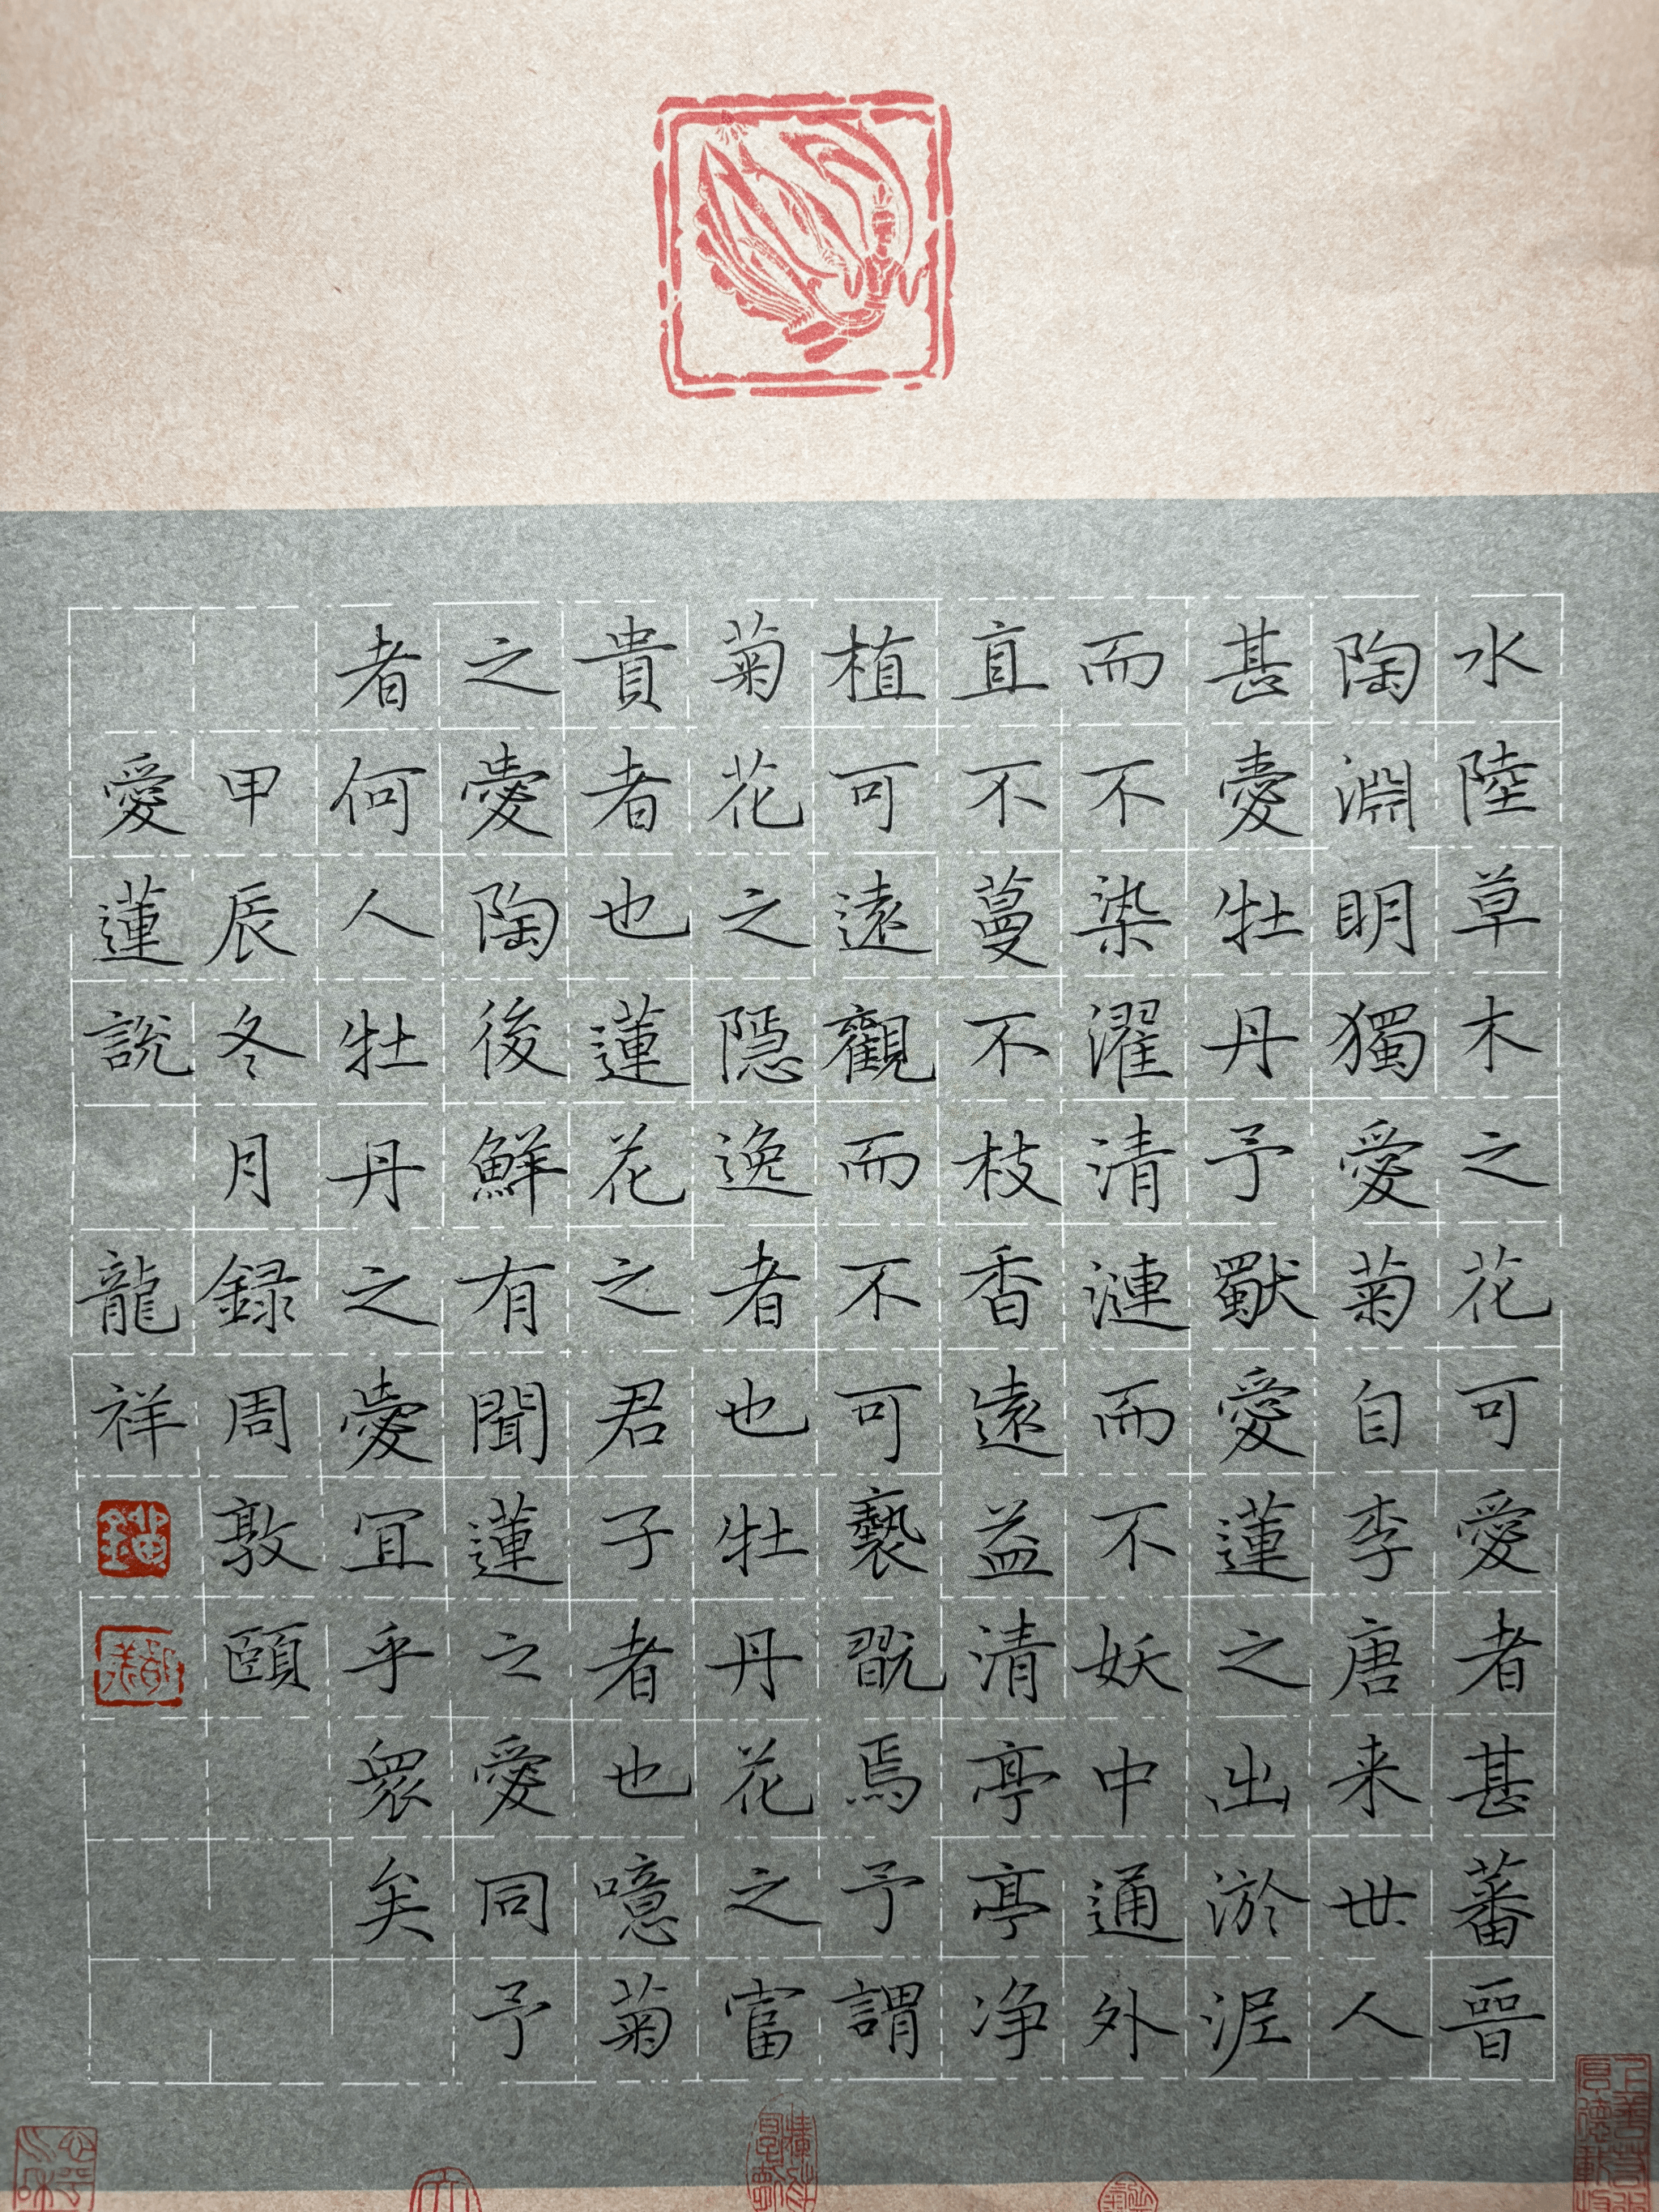 水陸草木之花可愛者甚蕃晉
陶淵明獨愛菊自李唐来世人
甚愛牡丹予獸愛蓮之出淤泥
而不染濯清漣而不妖中通外
直不蔓不枝香遠益清亭亭净
植可遠觀而不可褻翫焉予謂
菊花之隠逸者也牡丹花之富
貴者也蓮花之君子者也噫菊
之愛陶後鮮有聞蓮之愛同予
者何人牡丹之愛宜乎衆矣
甲辰冬月録周敦頤
愛蓮說 龍祥